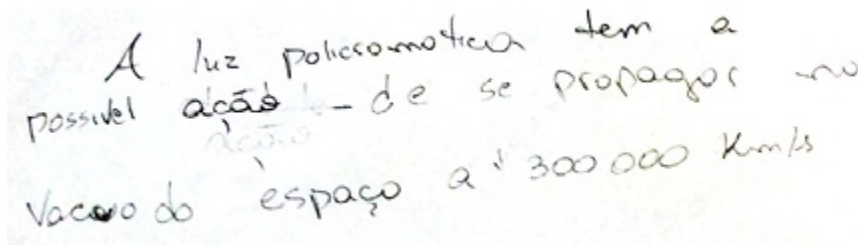 A luz policromotica tem a
possivel ação de se propagar no
Vacuo do espaço a 300 000 Km/s